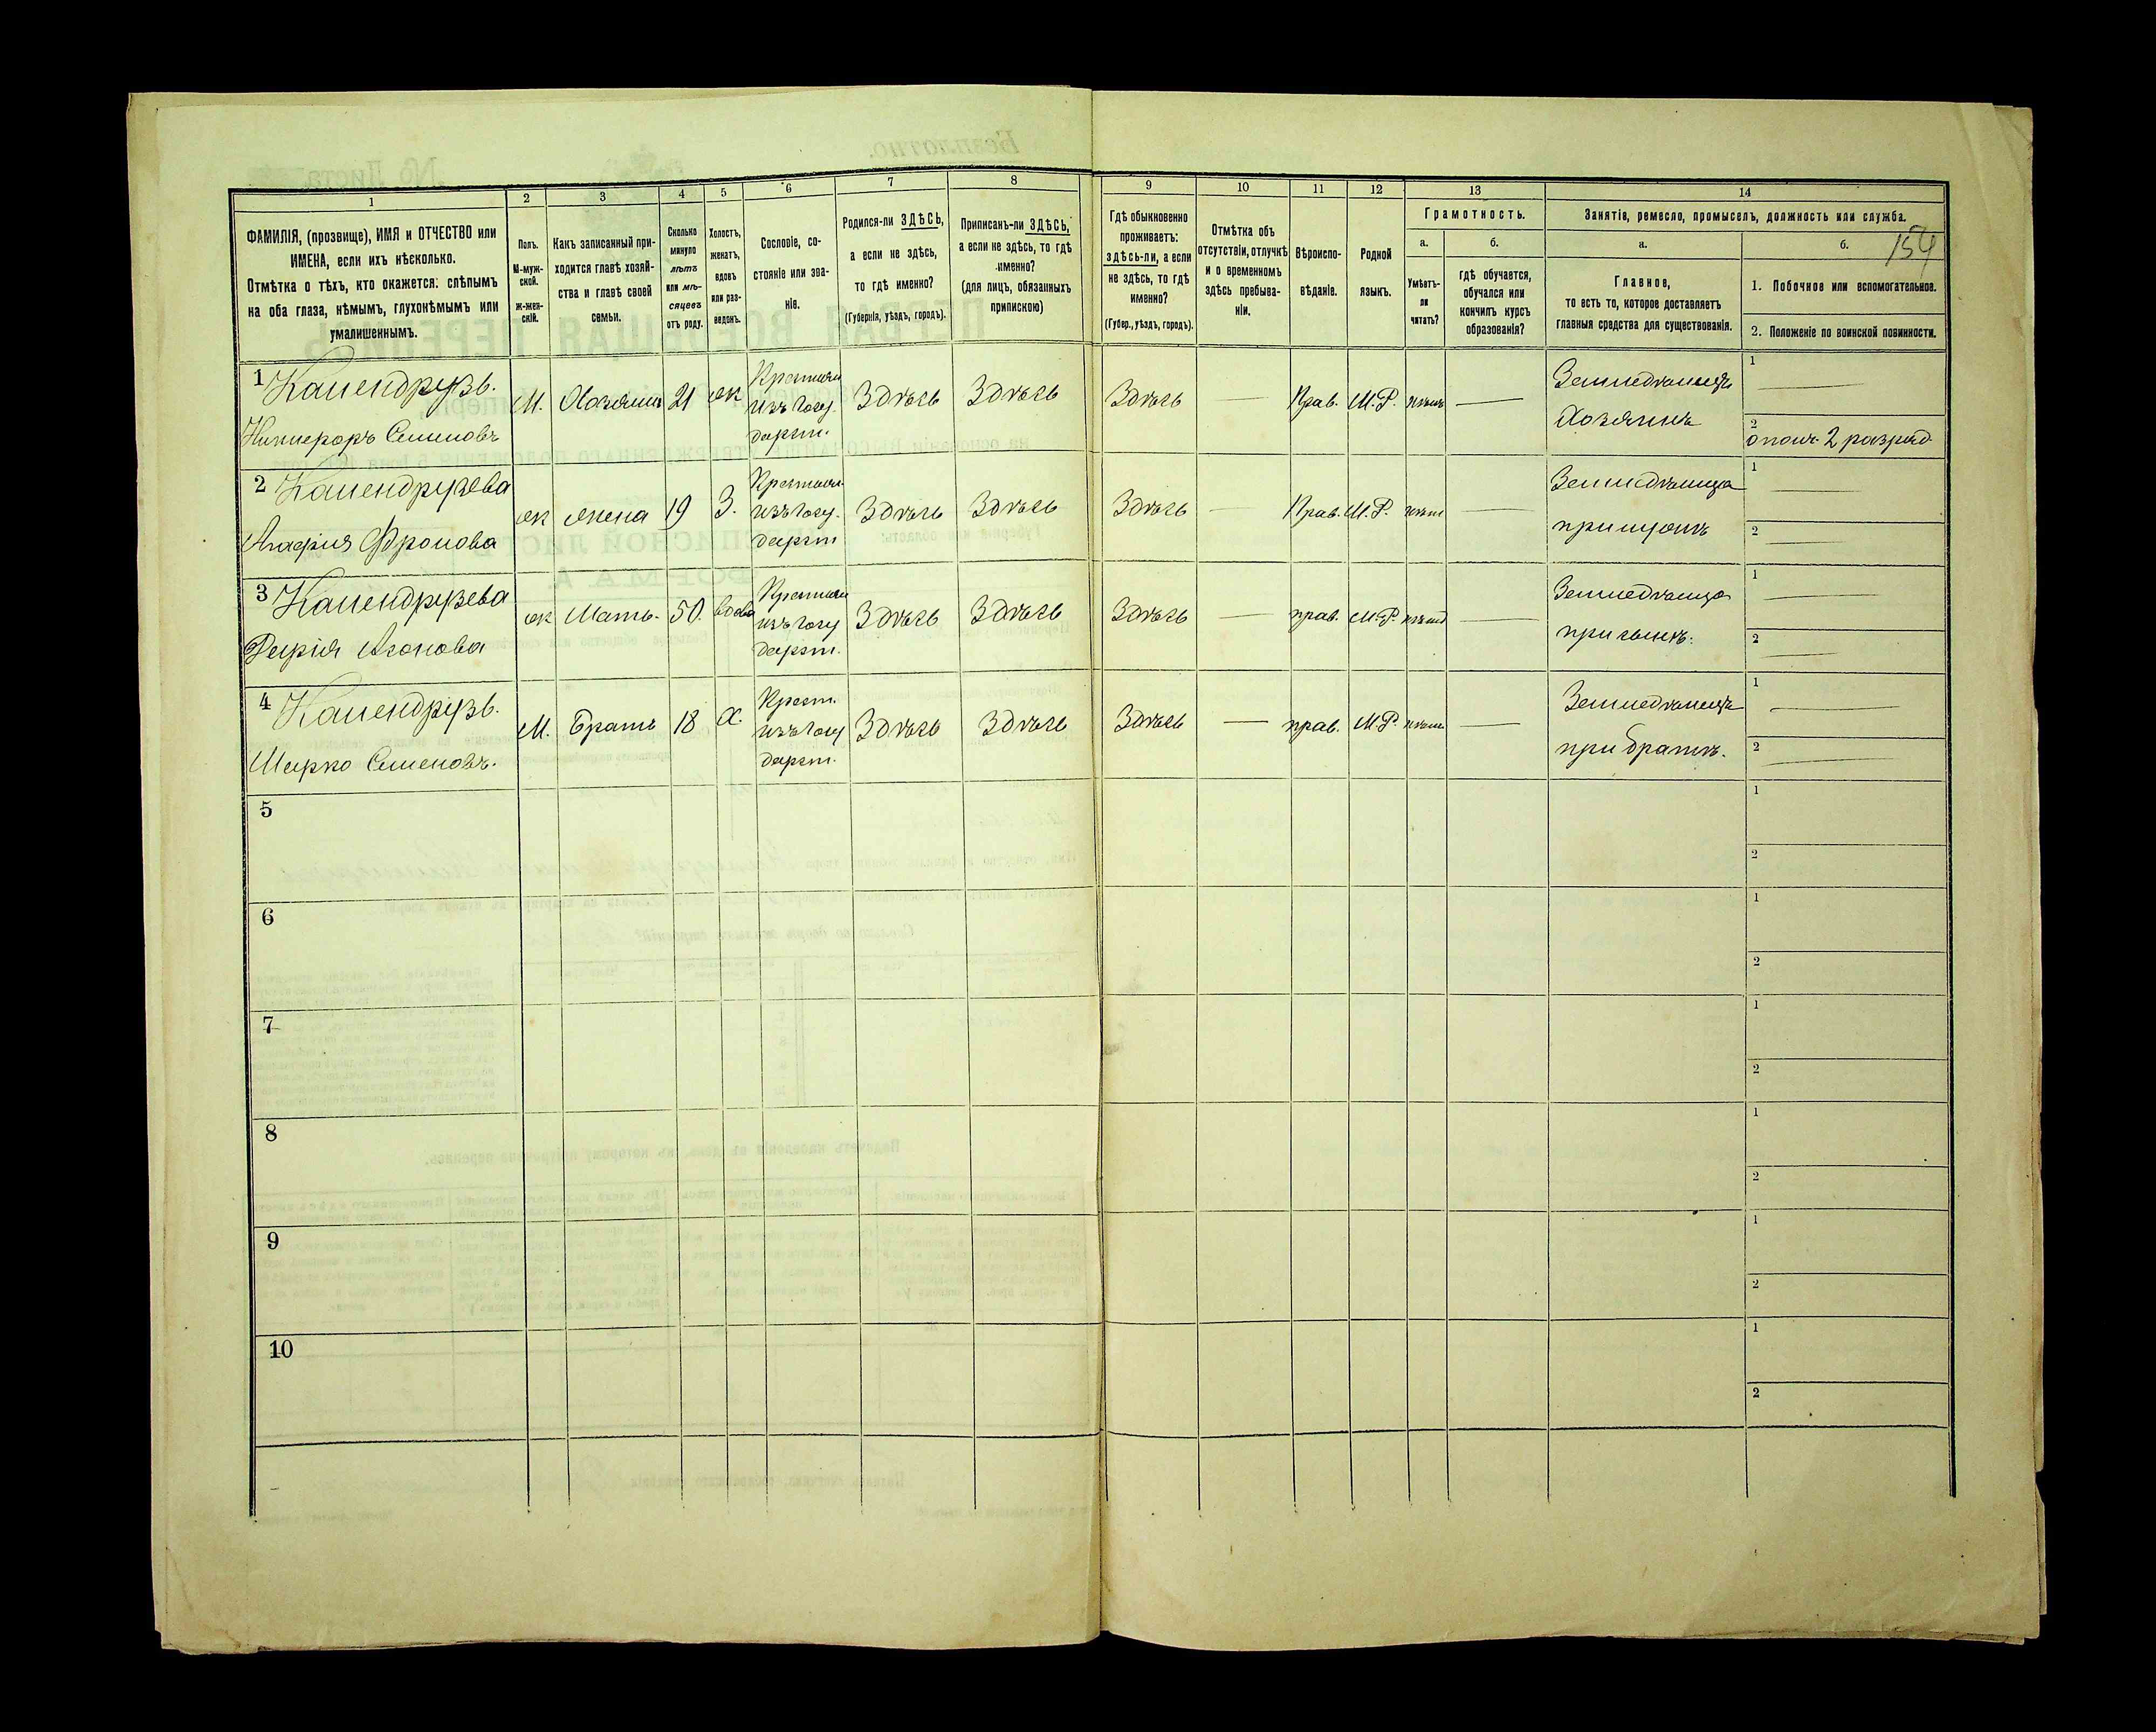 1
2
3
4
5
6
7
8
9
10
11
12
13
14
ФАМИЛІЯ, (прозвище), ИМЯ и ОТЧЕСТВО или
ИМЕНА, если ихъ нѣсколько.
Отмѣтка о тѣхъ, кто окажется: слѣпымъ
на оба глаза, нѣмымъ, глухонѣмымъ или
умалишеннымъ.
Полъ.
М-муж-
ской.
ж-жен-
скій.
Какъ записанный при-
ходится главѣ хозяй-
ства и главѣ своей
семьи.
Сколько
минуло
лѣтъ
или мѣ-
сяцевъ
отъ роду.
Холостъ,
женатъ,
вдовъ
или раз-
веденъ.
Сословіе, со-
стояніе или зва-
ніе.
Родился-ли ЗДѢСЬ,
а если не здѣсь,
то гдѣ именно?
(Губернія, уѣздъ, городъ).
Приписанъ-ли ЗДѢСЬ,
а если не здѣсь, то гдѣ
именно?
(для лицъ, обязанныхъ
припискою)
Гдѣ обыкновенно
проживаетъ:
здѣсь-ли, а если
не здѣсь, то гдѣ
именно?
(Губер., уѣздъ, городъ).
Отмѣтка объ
отсутствіи, отлучкѣ
и о временномъ
здѣсь пребыва-
ніи.
Вѣроиспо-
вѣданіе.
Родной
языкъ.
Грамотность.
а.
Умѣетъ-
ли
читать?
б.
гдѣ обучается,
обучался или
кончилъ курсъ
образованія?
Занятіе, ремесло, промыселъ, должность или служба.
а.
Главное,
то есть то, которое доставляетъ
главныя средства для существованія.
б.
154
1. Побочное или вспомогательное.
2. Положеніе по воинской повинности.
1
Никифоръ Семеновъ
М. Хозяинъ 21 ж
Крестьян
изъ Госу-
дарст.
Здѣсь Здѣсь Здѣсь — Прав. М.Р. нѣтъ —
Земледѣлецъ
Хозяинъ
1 —
2 ополч. 2 разряд
2
Агафія
ж жена 19 З.
Крестьян
изъ Госу-
дарст
Здѣсь Здѣсь Здѣсь — Прав. М.Р. нѣтъ —
Земледѣлица
при мужѣ
1 —
2 —
3
ж Мать 50. вдова
Крестьян
изъ Госу
дарст.
Здѣсь Здѣсь Здѣсь — прав. М.Р. нѣтъ —
Земледѣлица
при сынѣ.
1 —
2 —
4
Марко Семеновъ.
М. Братъ 18 Х.
Крест.
изъ Госу
дарст.
Здѣсь Здѣсь Здѣсь — прав. М.Р. нѣтъ —
Земледѣлецъ
при братѣ.
1 —
2 —
5
1
2
6
1
2
7
1
2
8
1
2
9
1
2
10
1
2